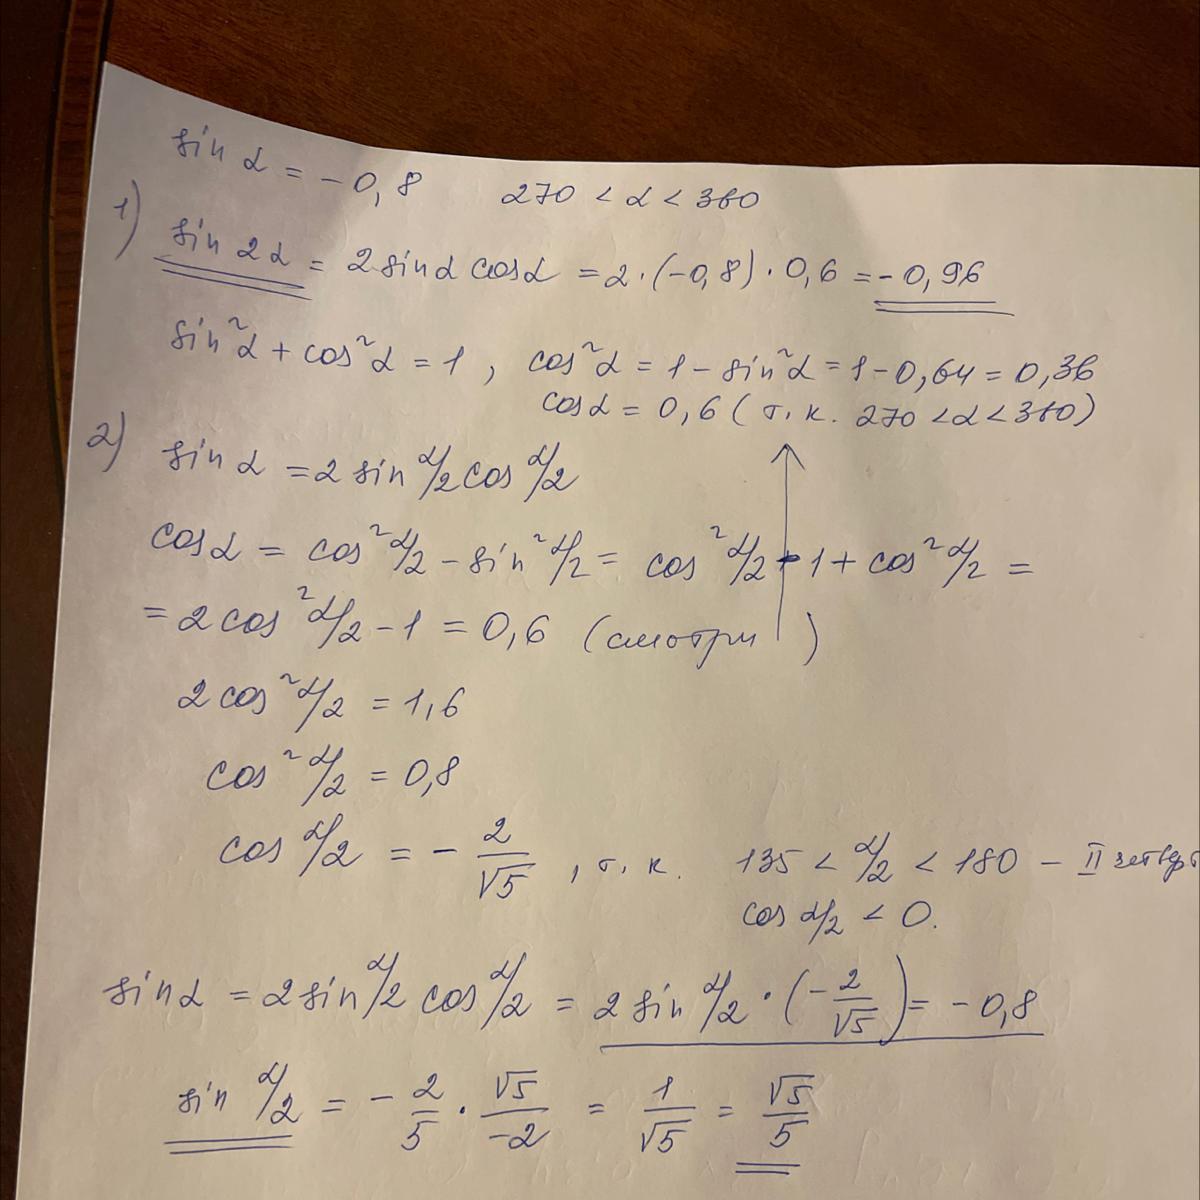 sin α = -0,8   270 < α < 360
1) sin 2α = 2 sin α cos α = 2 · (-0,8) · 0,6 = -0,96
sin²α + cos²α = 1 , cos²α = 1 - sin²α = 1 - 0,64 = 0,36
cos α = 0,6 (т.к. 270 < α < 360)
2) sin α = 2 sin α/2 cos α/2
cos α = cos² α/2 - sin² α/2 = cos² α/2 - 1 + cos² α/2 =
= 2 cos² α/2 - 1 = 0,6 (смотри ↑)
2 cos² α/2 = 1,6
cos² α/2 = 0,8
cos α/2 = - 2/√5 , т.к. 135 < α/2 < 180 - II четверт
cos α/2 < 0.
sin α = 2 sin α/2 cos α/2 = 2 sin α/2 · (- 2/√5) = -0,8
sin α/2 = - 2/5 · √5/-2 = 1/√5 = √5/5